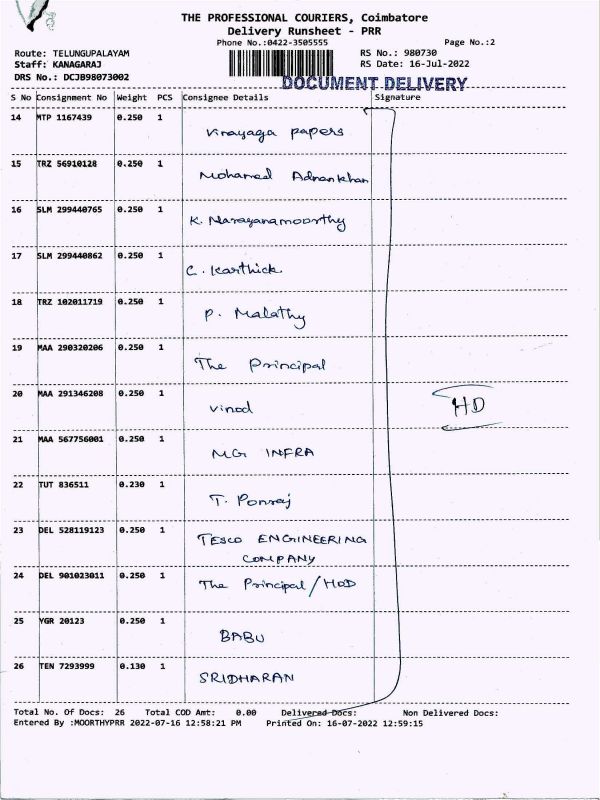 THE PROFESSIONAL COURIERS, Coimbatore
Delivery Runsheet - PRR
Phone No.:0422-3505555 Page No.:2
Route: TELUNGUPALAYAM RS No.: 980730
Staff: KANAGARAJ RS Date: 16-Jul-2022
DRS No.: DCJB98073002
DOCUMENT DELIVERY
S No Consignment No Weight PCS Consignee Details Signature
14 MTP 1167439 0.250 1
Vinayaga papers
15 TRZ 56910128 0.250 1
Mohamed Adnankhan
16 SLM 299440765 0.250 1
K. Narayanamoorthy
17 SLM 299440862 0.250 1
C. Karthick
18 TRZ 102011719 0.250 1
P. Malathy
19 MAA 290320206 0.250 1
The Principal
20 MAA 291346208 0.250 1
Vinod HD
21 MAA 567756001 0.250 1
MG INFRA
22 TUT 836511 0.230 1
T. Ponraj
23 DEL 528119123 0.250 1
TESCO ENGINEERING
COMPANY
24 DEL 901023011 0.250 1
The Principal/HOD
25 YGR 20123 0.250 1
BABU
26 TEN 7293999 0.130 1
SRIDHARAN
Total No. Of Docs: 26 Total COD Amt: 0.00 Delivered Docs: Non Delivered Docs:
Entered By :MOORTHYPRR 2022-07-16 12:58:21 PM Printed On: 16-07-2022 12:59:15